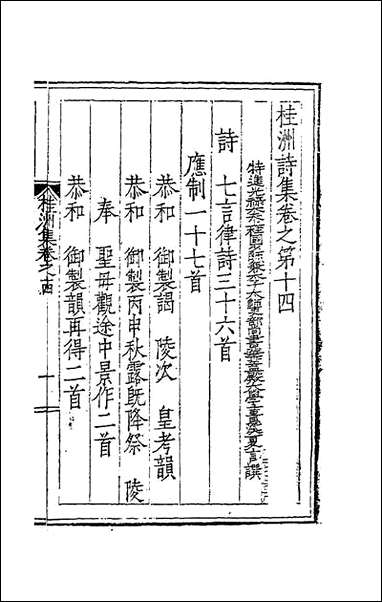 桂洲詩集卷之第十四
特進光祿大夫上柱國少師兼太子太師吏部尚書華蓋殿大學士貴溪夏言撰
詩　七言律詩三十六首
應制一十七首
恭和　御製謁　陵次　皇考韻
恭和　御製丙申秋露既降祭　陵
奉　聖母觀途中景作二首
恭和　御製韻再得二首
桂洲集卷之十四
一